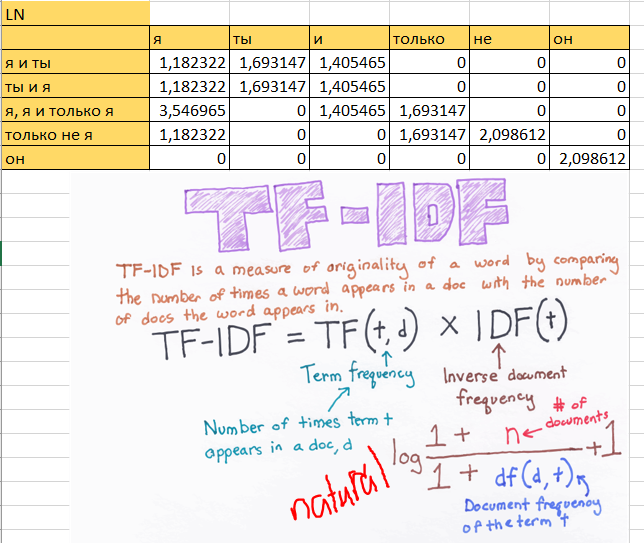 LN
я ты и только не он
я и ты 1,182322 1,693147 1,405465 0 0 0
ты и я 1,182322 1,693147 1,405465 0 0 0
я, я и только я 3,546965 0 1,405465 1,693147 0 0
только не я 1,182322 0 0 1,693147 2,098612 0
он 0 0 0 0 0 2,098612
TF-IDF
TF-IDF is a measure of originality of a word by comparing
the number of times a word appears in a doc with the number
of docs the word appears in.
TF-IDF = TF(t, d) × IDF(t)
Term frequency
Inverse document
frequency
Number of times term t
appears in a doc, d
# of
documents
natural
log 1 + n / 1 + df(d, t) + 1
Document frequency
of the term t